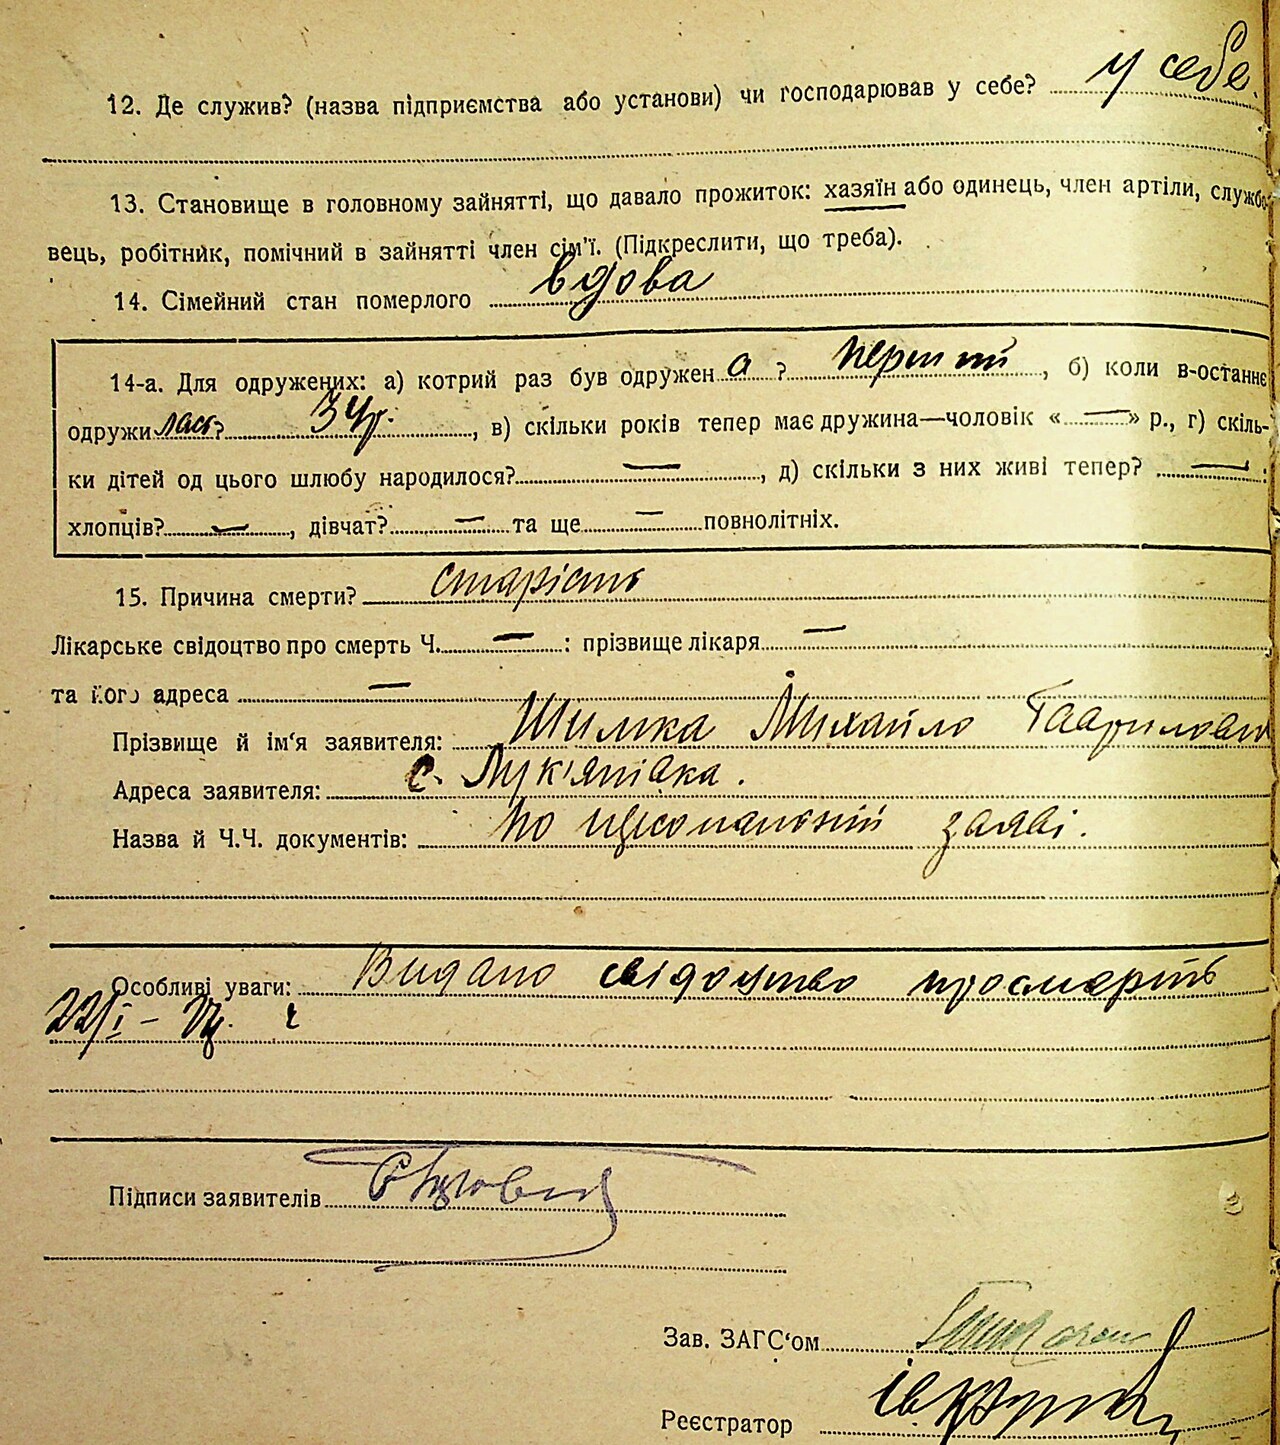 12. Де служив? (назва підприємства або установи) чи господарював у себе? у себе.
13. Становище в головному зайнятті, що давало прожиток: хазяїн або одинець, член артіли, службо-
вець, робітник, помічний в зайнятті член сім'ї. (Підкреслити, що треба).
14. Сімейний стан померлого вдова
14-а. Для одружених: а) котрий раз був одружен а ? перший, б) коли в-останнє
одружилась? 34 р., в) скільки років тепер має дружина—чоловік «—» р., г) скіль-
ки дітей од цього шлюбу народилося? —, д) скільки з них живі тепер? — :
хлопців? —, дівчат? — та ще — повнолітніх.
15. Причина смерти? старість
Лікарське свідоцтво про смерть Ч. — : прізвище лікаря —
та його адреса —
Прізвище й ім'я заявителя: Шимка Михайло Гаврилович
Адреса заявителя: с. Лук'янівка.
Назва й Ч.Ч. документів: по заяві.
Особливі уваги: Видано свідоцтво про смерть
22/I –
Підписи заявителів
Зав. ЗАГС'ом
Реєстратор